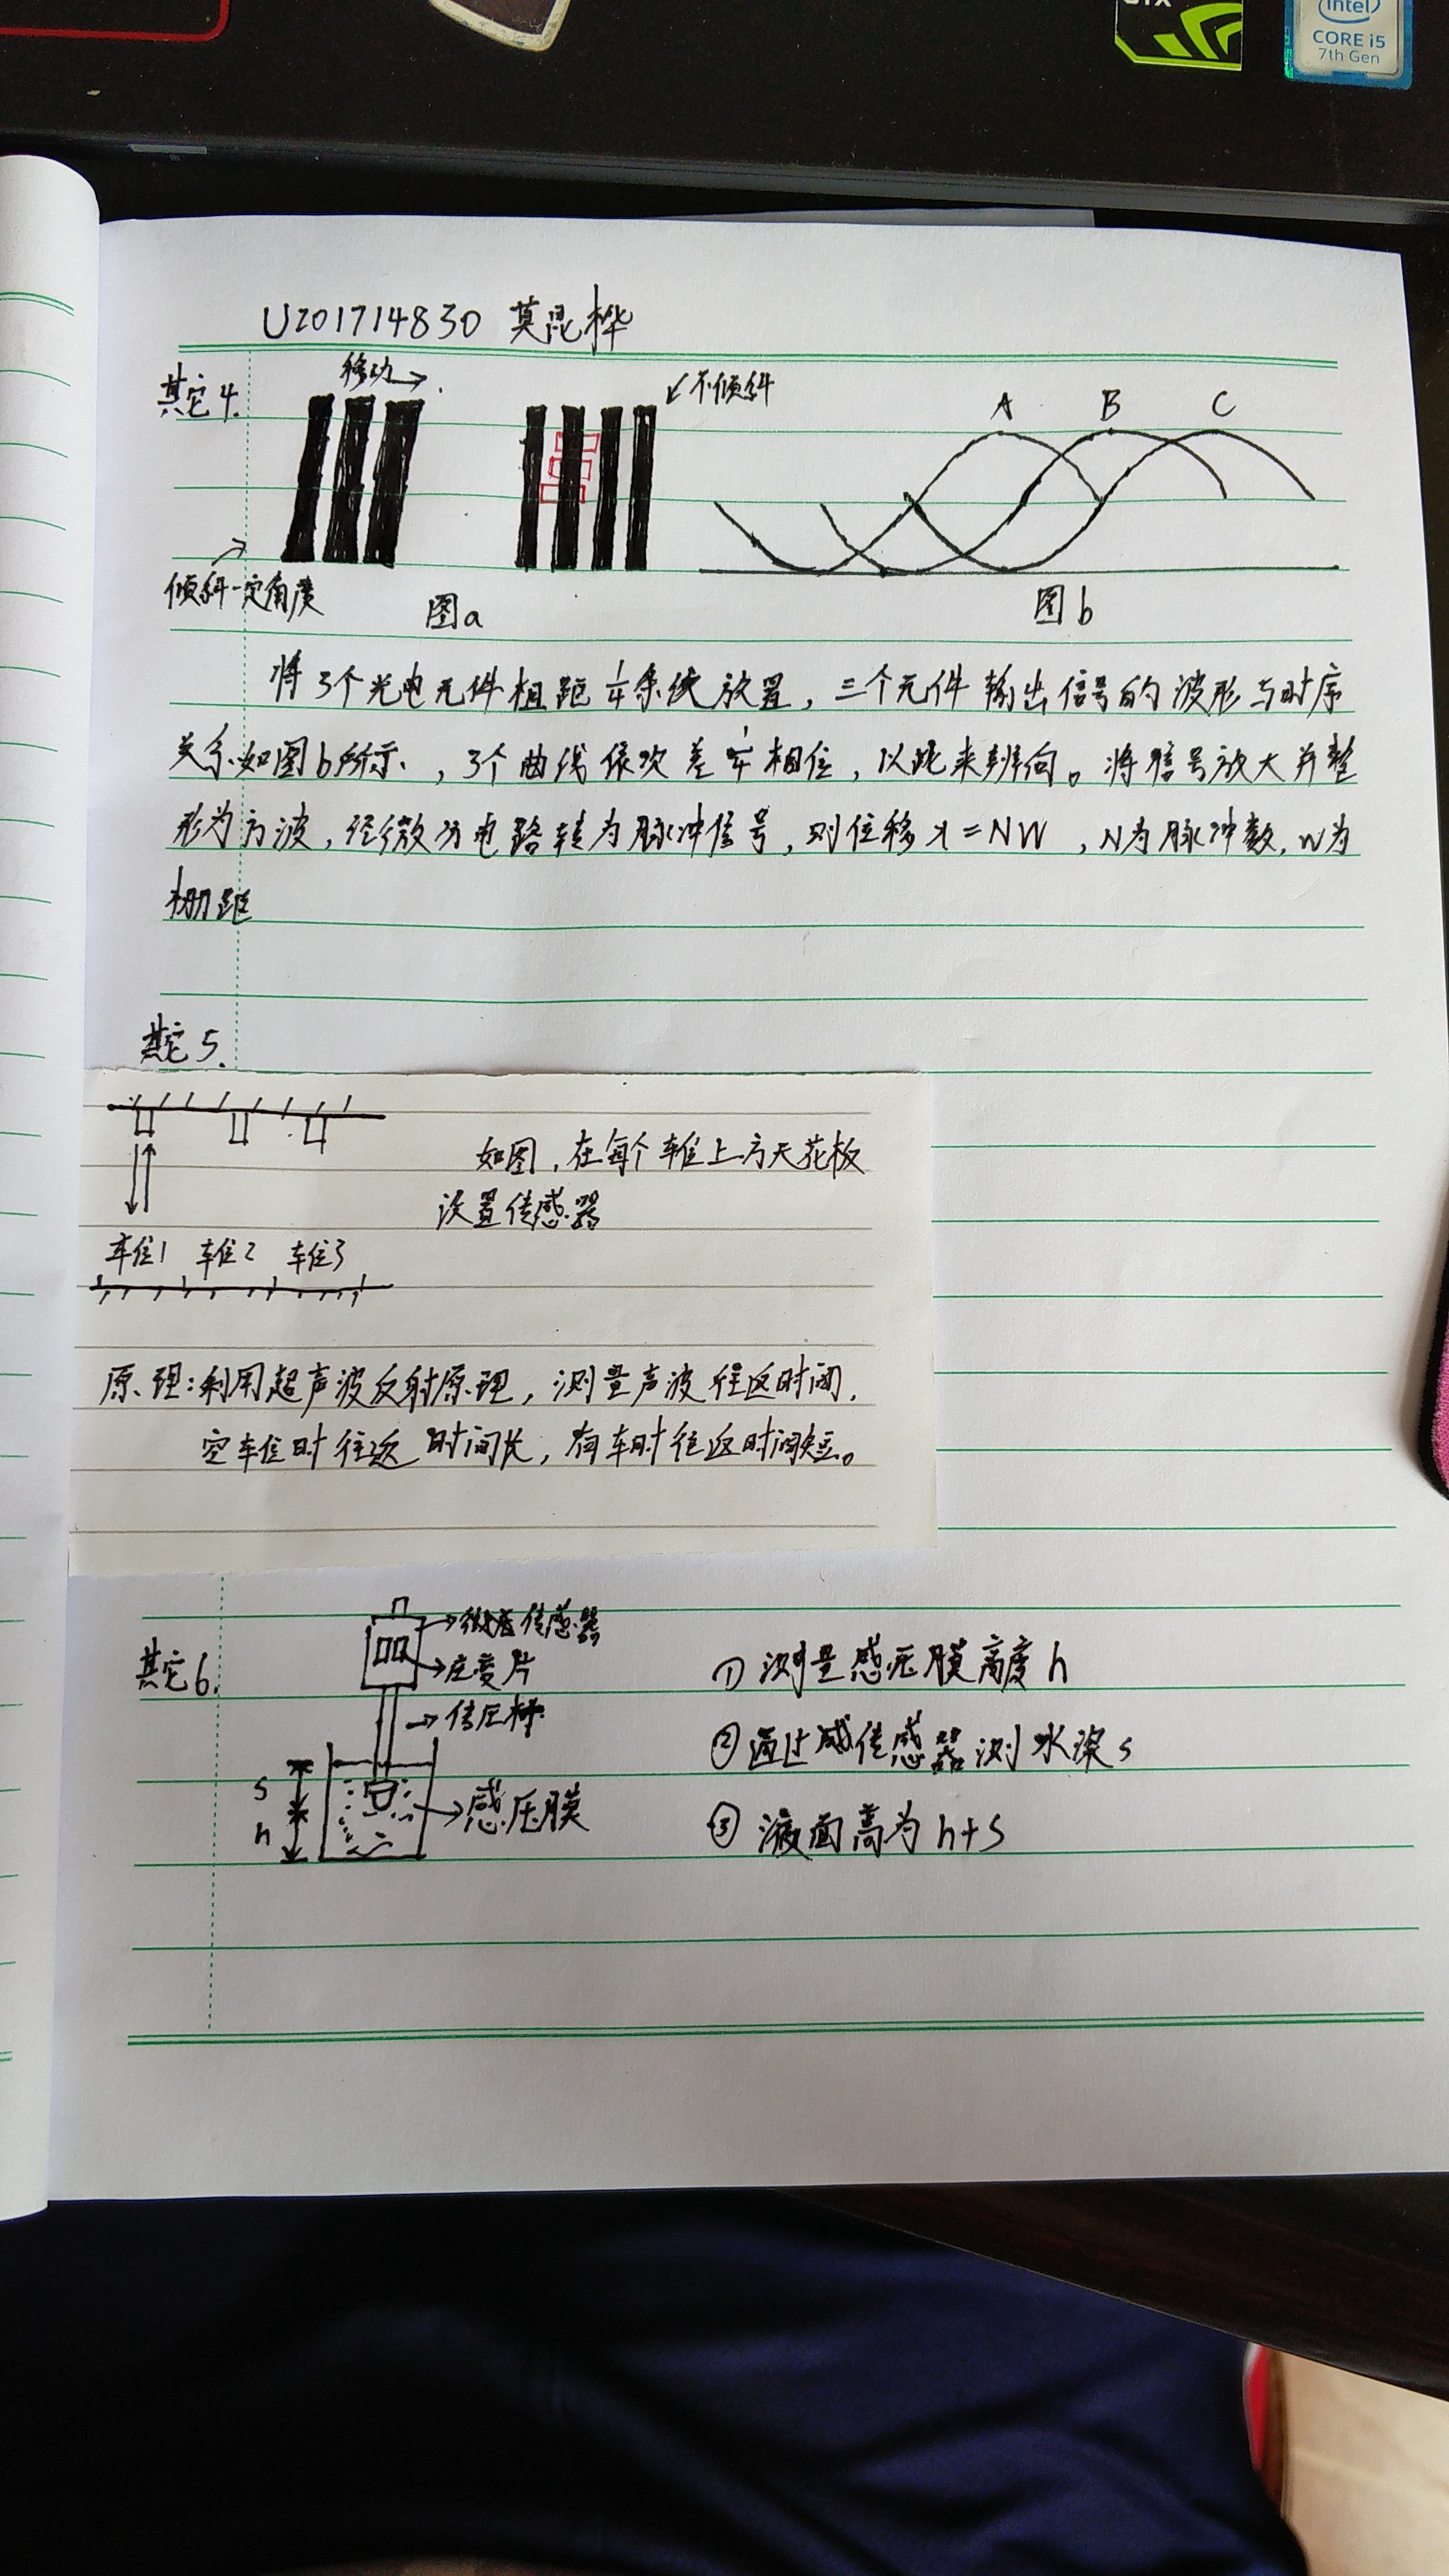 GTX
intel
CORE i5
7th Gen
U201714830 莫昆桦
其它4.
移动→
↙不倾斜
A B C
倾斜一定角度
图a
图b
将3个光电元件相距1/4条纹放置,三个元件输出信号的波形与时序
关系如图b所示,3个曲线依次差1/4相位,以此来辨向。将信号放大并整
形为方波,经微分电路转为脉冲信号,则位移x=NW,N为脉冲数,W为
栅距
其它5.
如图,在每个车位上方天花板
设置传感器
车位1 车位2 车位3
原理:利用超声波反射原理,测量声波往返时间,
空车位时往返时间长,有车时往返时间短。
其它6.
传感器
应变片
传压杆
感压膜
s
h
① 测量感压膜高度h
②通过传感器测水深s
③ 液面高为h+s